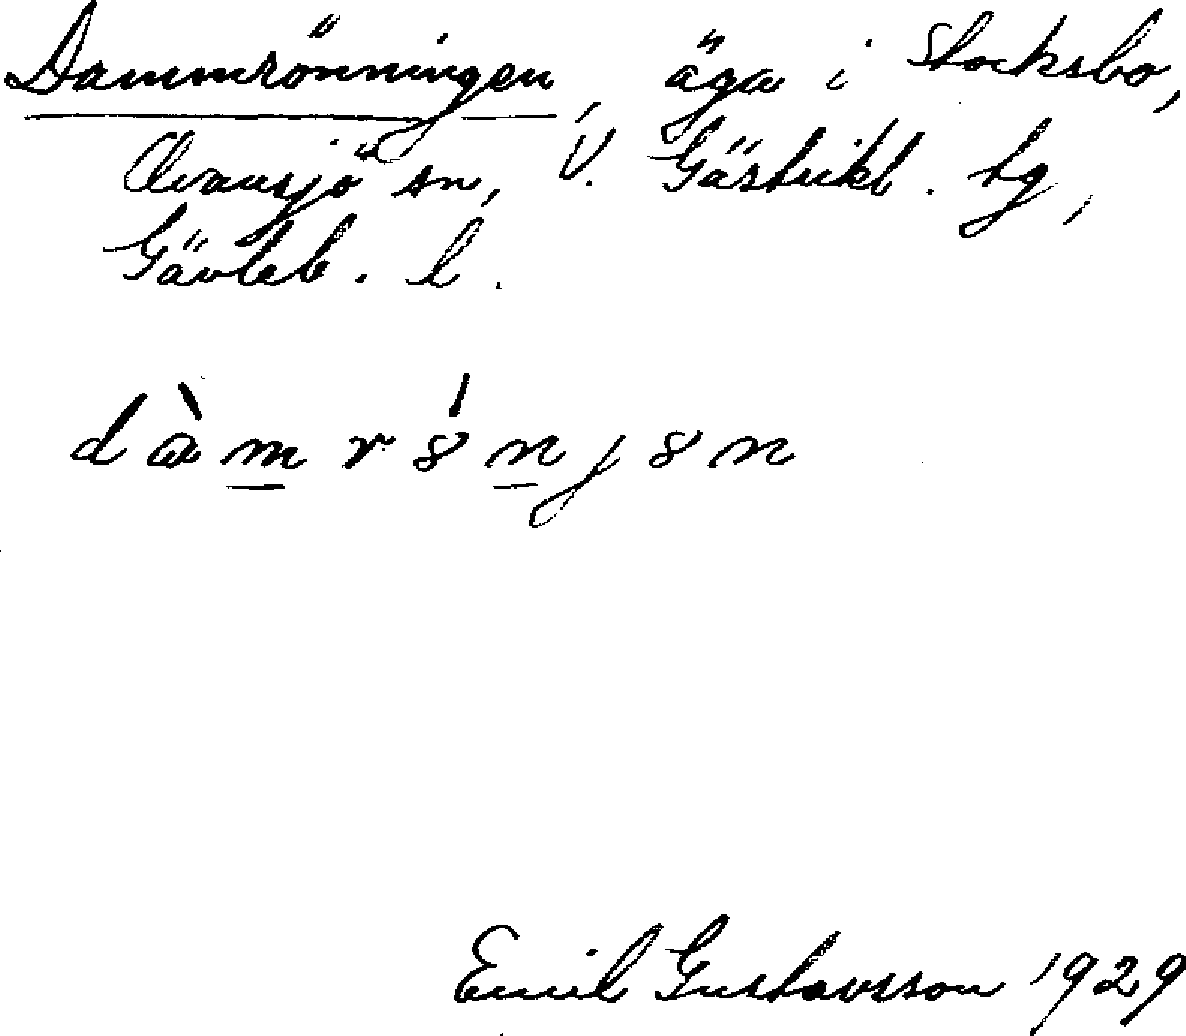 Dammrönningen, äga i Stocksbo,
Ovansjö sn, V. Gästrikl. tg,
Gävleb. l.
dàmrǿnjøn
Emil Gustavsson 1929